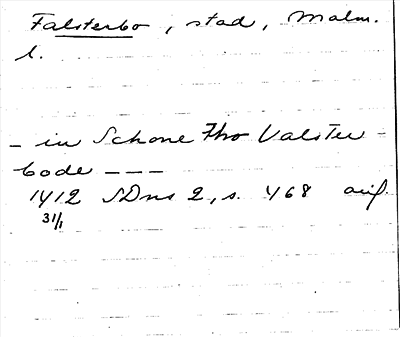 Falsterbo, stad, Malm.
l.
- in Schone tho Valster-
bode ---
1412 SDns 2, s. 468 avs.
31/1